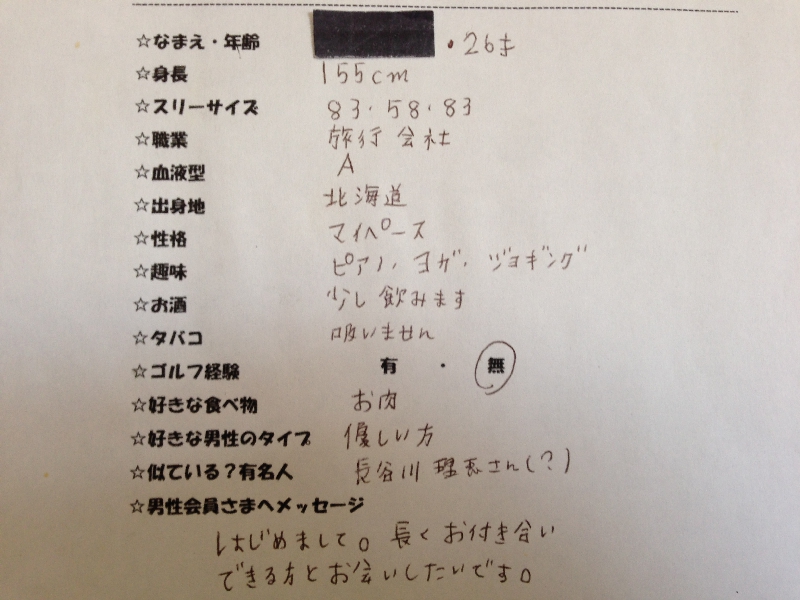 ☆なまえ・年齢 ・26才
☆身長 155cm
☆スリーサイズ 83・58・83
☆職業 旅行会社
☆血液型 A
☆出身地 北海道
☆性格 マイペース
☆趣味 ピアノ・ヨガ・ジョギング
☆お酒 少し飲みます
☆タバコ 吸いません
☆ゴルフ経験 有 ・ 無
☆好きな食べ物 お肉
☆好きな男性のタイプ 優しい方
☆似ている?有名人 長谷川理恵さん(?)
☆男性会員さまへメッセージ
はじめまして。長くお付き合い
できる方とお会いしたいです。